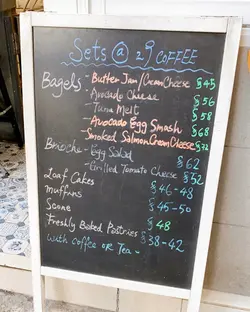 Sets @ 29 COFFEE
Bagels - Butter Jam/Cream Cheese $45
- Avocado Cheese $56
- Tuna Melt $58
- Avocado Egg Smash $68
- Smoked Salmon, Cream Cheese $72
Brioche - Egg Salad $62
- Grilled Tomato Cheese $52
Loaf Cakes $46-48
Muffins $45-50
Scone $48
Freshly Baked Pastries $38-42
with Coffee OR Tea -